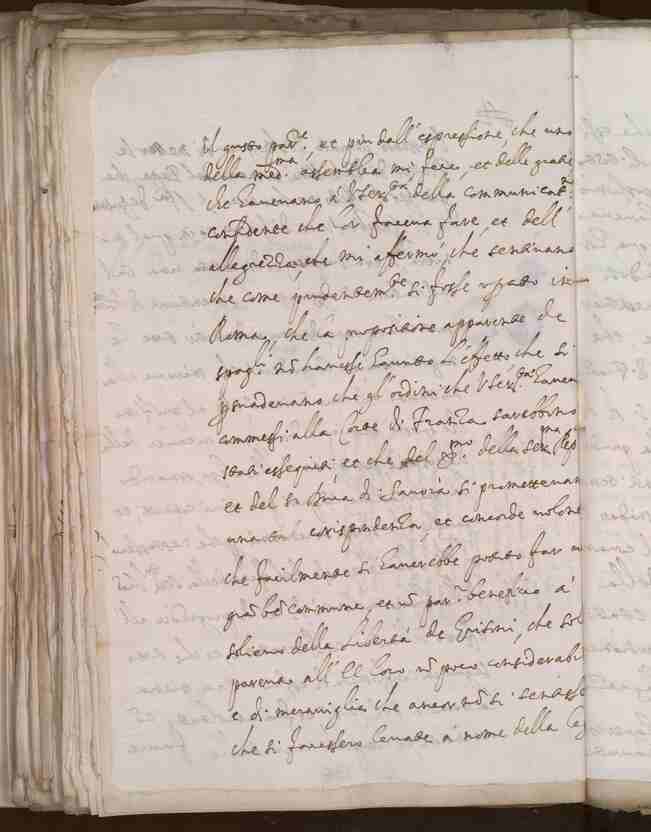 il gusto par.re, et piu dall' espressione, che uno
della med.ma assemblea mi fece, et delle gratie
che havevano à V. Ser.tà della communicat.e
confidente che lor faceva fare, et dell'
allegrezza, che mi affermò, che sentivano
che come prudentem.te si fosse in
Roma, che la propositione apparente de
spag.li nõ havesse havuto l' effetto che si
persuadevano che gl' ordini che V. Ser.tà haven
commessi alla Corte di Franza sarebbono
stati esseguiti, et che del X.mo della Ser.ma Rep
et del s.r Duca di Savoia si promettevan
una corispondenza, et concorde volont
che facilmente si haverebbe potuto far
grã bẽ commune, et ũ par.re beneficio a'
sollievo della libertà de Grisoni, che sol
pareva all' EE loro nõ poco considerabil
e di meraviglia che ancor nõ si sentisse
che si facessero levate à nome della Leg